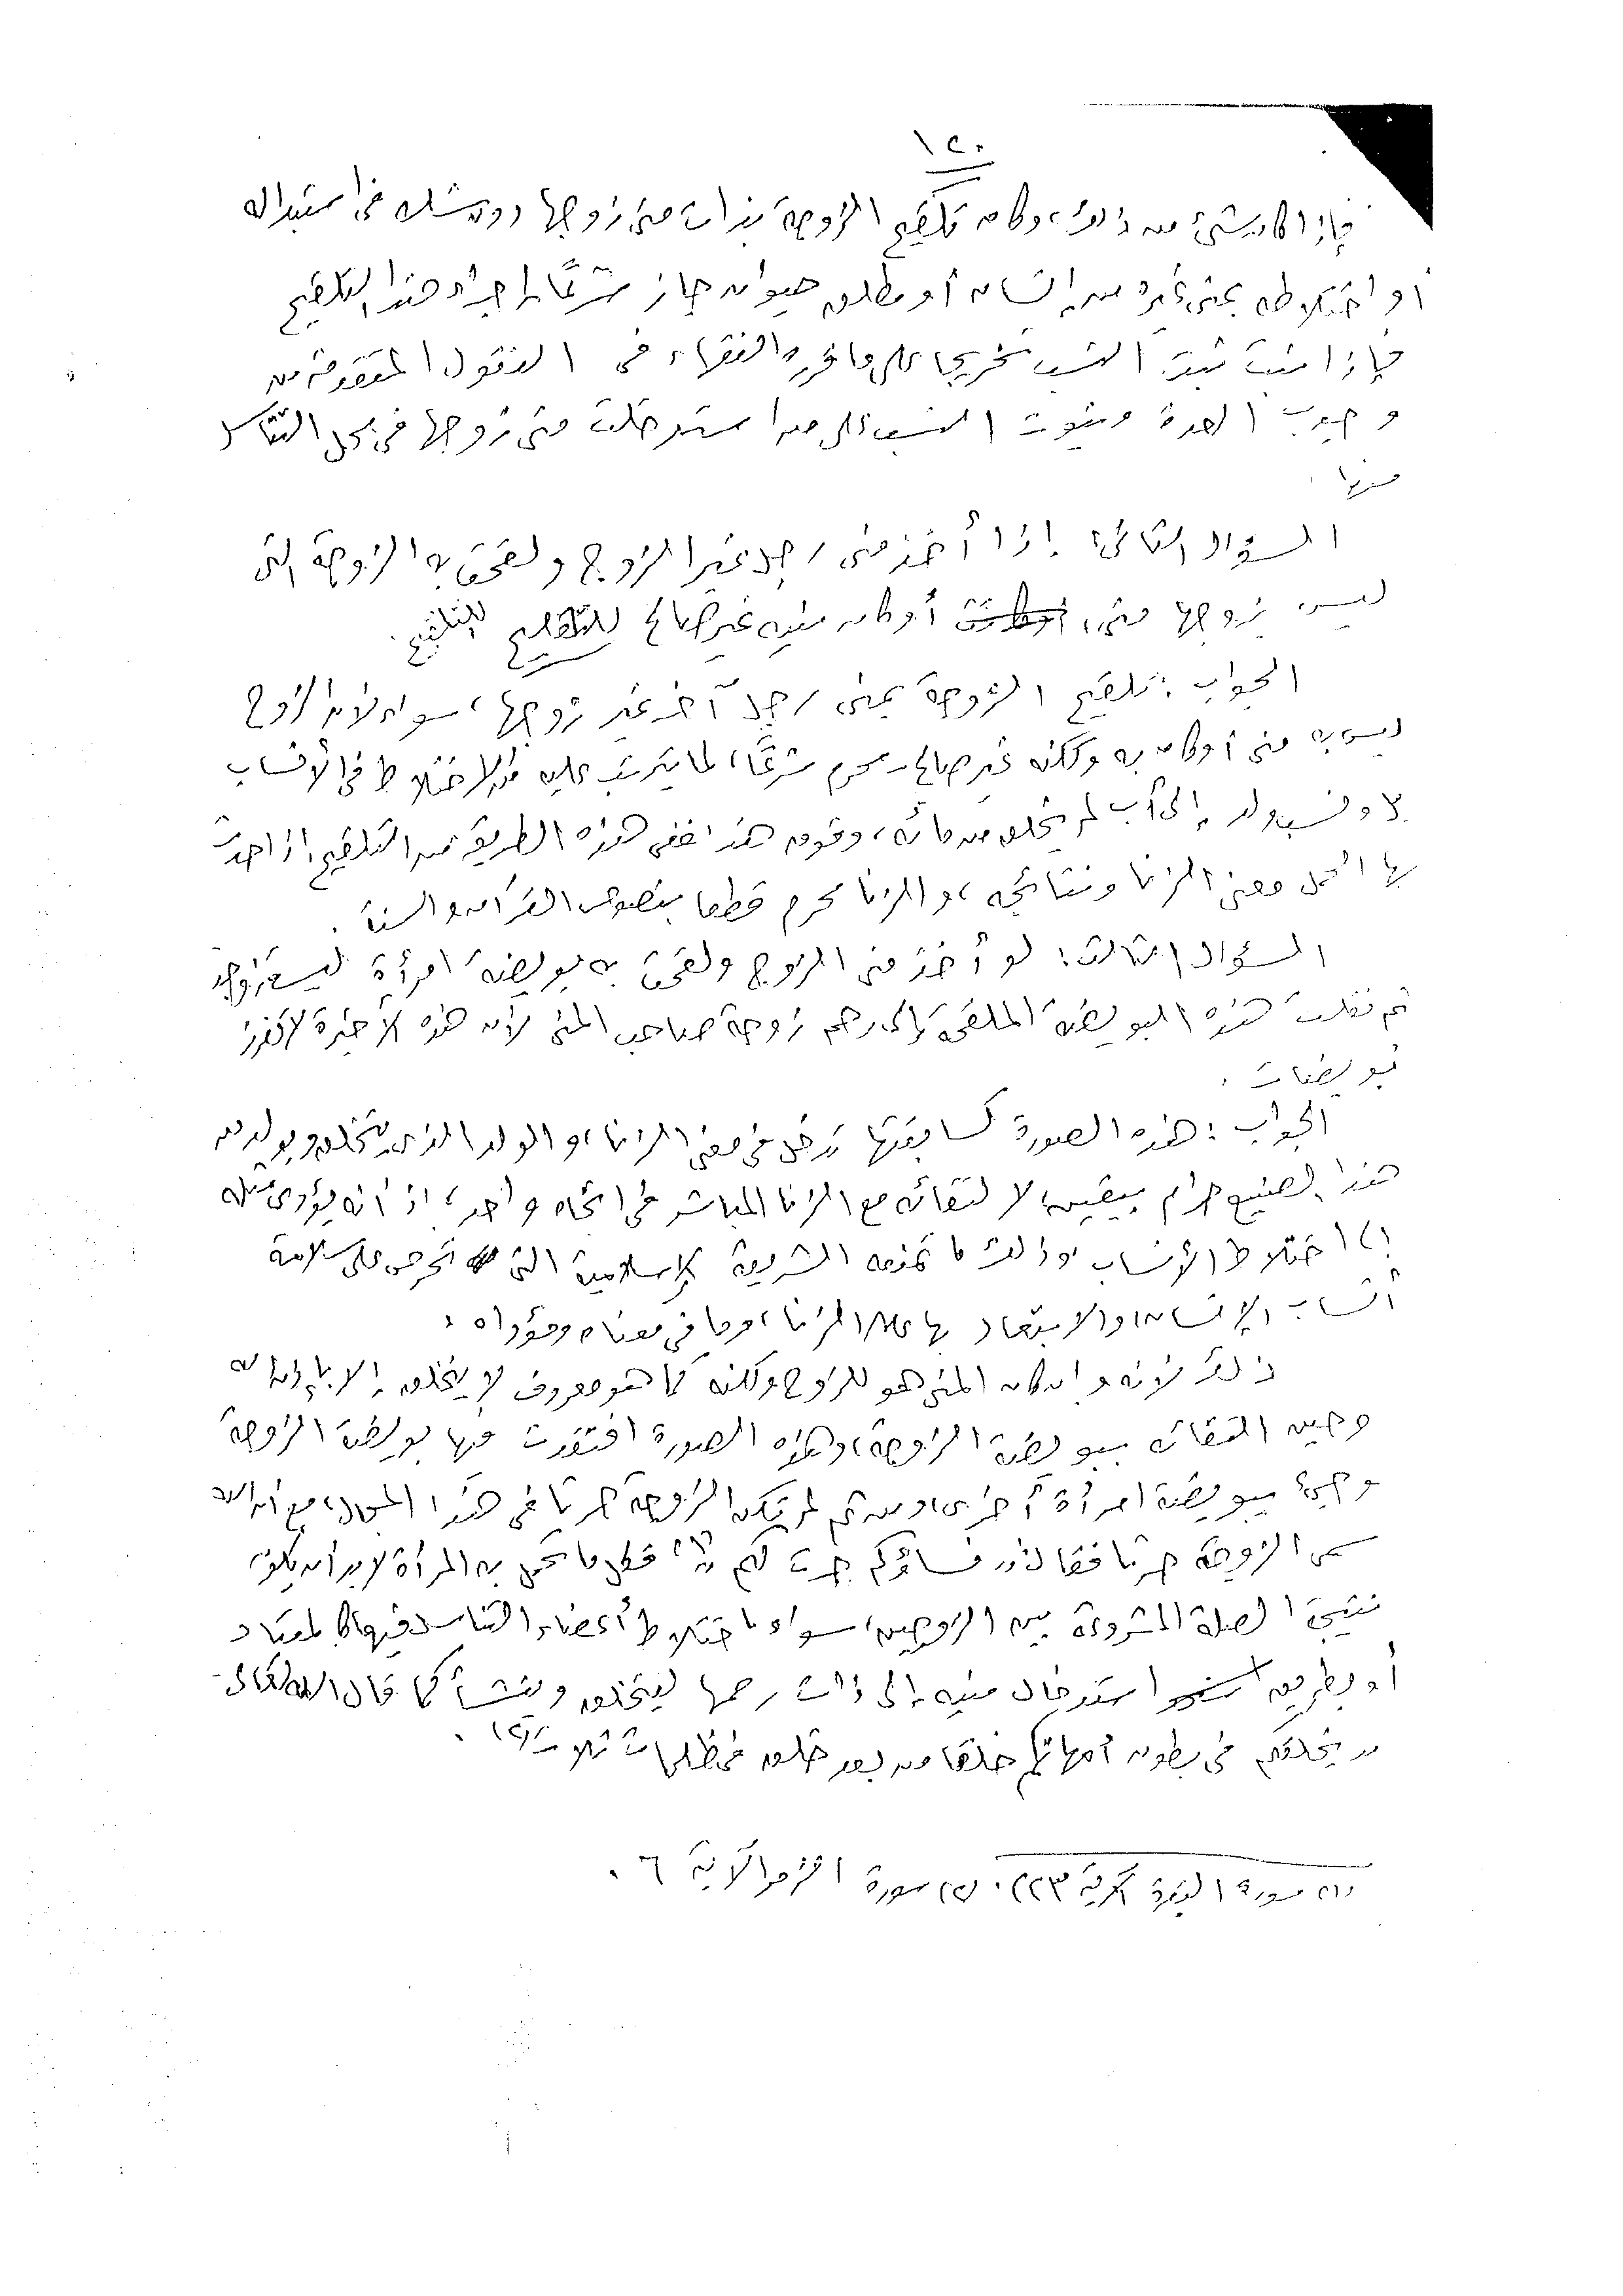 ١٢٠
فإذا كان شيء من ذلك، وكان تلقيح الزوجة بذات منى زوجها دون شك في استبداله
أو اختلاطه بمنى غيره من إنسان أو مطلق حيوان جاز شرعًا إجراء هذا التلقيح
فإذا نبت ثبت النسب تخريجا على ما قرره الفقهاء في النقول المتقدمة من
وجوب العدة وثبوت النسب على من استدخلت منى زوجها في محل التناسل
منها.
السؤال الثاني: إذا أخذ منى رجل غير الزوج ولقحت به الزوجة التي
ليس لزوجها منى، أو كان منيه غير صالح للتلقيح.
الجواب: تلقيح الزوجة بمنى رجل آخر غير زوجها، سواء لأن الزوج
ليس به منى أو كان به ولكنه غير صالح - محرم شرعًا، لما يترتب عليه من الاختلاط في الأنساب
بل ونسب ولد إلى أب لم يخلق من مائه، وفوق هذا ففي هذه الطريقة من التلقيح إذا حدث
بها الحمل معنى الزنا ونتائجه، والزنا محرم قطعا بنصوص القرآن والسنة.
السؤال الثالث: لو أخذ منى الزوج ولقحت به بويضة امرأة ليست زوجته
ثم نقلت هذه البويضة الملقحة إلى رحم زوجة صاحب المنى لأن هذه الأخيرة لا تفرز
بويضات.
الجواب: هذه الصورة كسابقتها تدخل في معنى الزنا، والولد الذى يتخلق ويولد من
هذا الصنيع حرام بيقين، لالتقائه مع الزنا المباشر في اتجاه واحد، إذ أنه يؤدى مثله
إلى اختلاط الأنساب، وذلك ما تمنعه الشريعة الإسلامية التي تحرص على سلامة
أنساب الإنسان، والابتعاد بها عن الزنا، وما في معناه ومؤداه.
ذلك لأنه وإن كان المنى هو للزوج ولكنه كما هو معروف لا يتخلق إلا بإذن الله
وحين التقائه ببويضة الزوجة، وهذه الصورة افتقدت فيها بويضة الزوجة
وجيء ببويضة امرأة أخرى، ومن ثم لم تكن الزوجة حرثا في هذا الحال، مع أن الله
سمى الزوجة حرثا فقال: نساؤكم حرث لكم (١)، فكل ما تحمل به المرأة لابد أن يكون
نتيجة الصلة المشروعة بين الزوجين، سواء باختلاط أعضاء التناسل فيهما كالمعتاد
أو بطريق استدخال منيه إلى ذات رحمها ليتخلق وينشأ كما قال الله تعالى
يخلقكم في بطون أمهاتكم خلقا من بعد خلق في ظلمات ثلاث (٢).
(١) سورة البقرة الآية ٢٢٣. (٢) سورة الزمر الآية ٦.